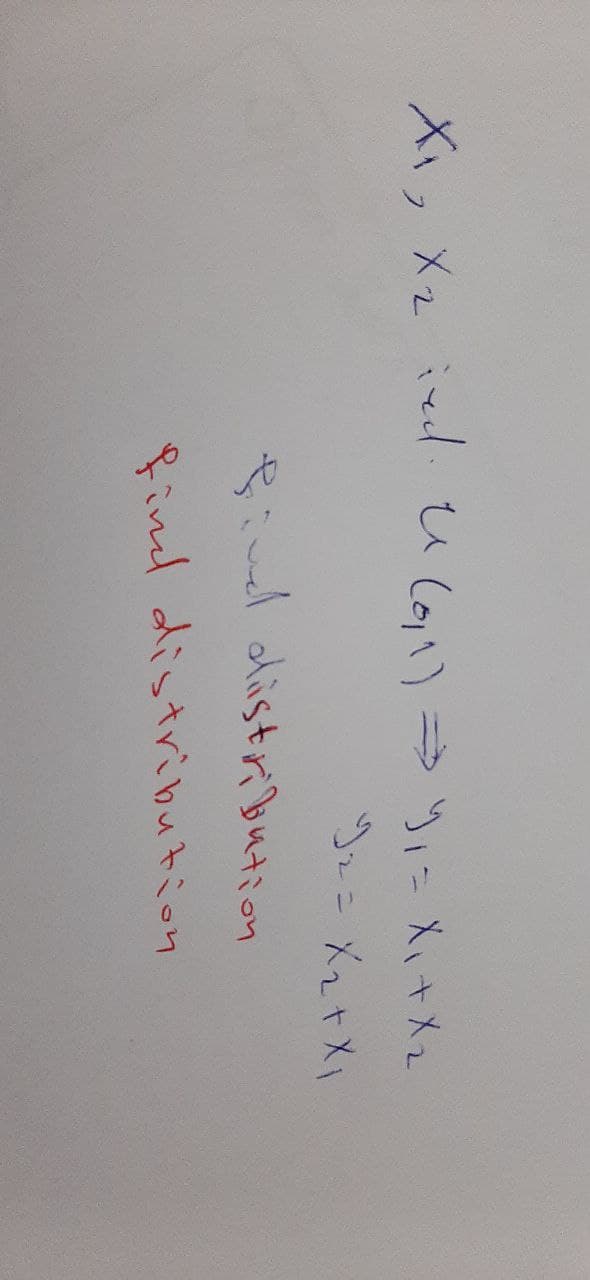 X₁, X₂ ind. U(0,1) ⇒ y₁ = X₁ + X₂
y₂ = X₂ + X₁
find distribution
find distribution